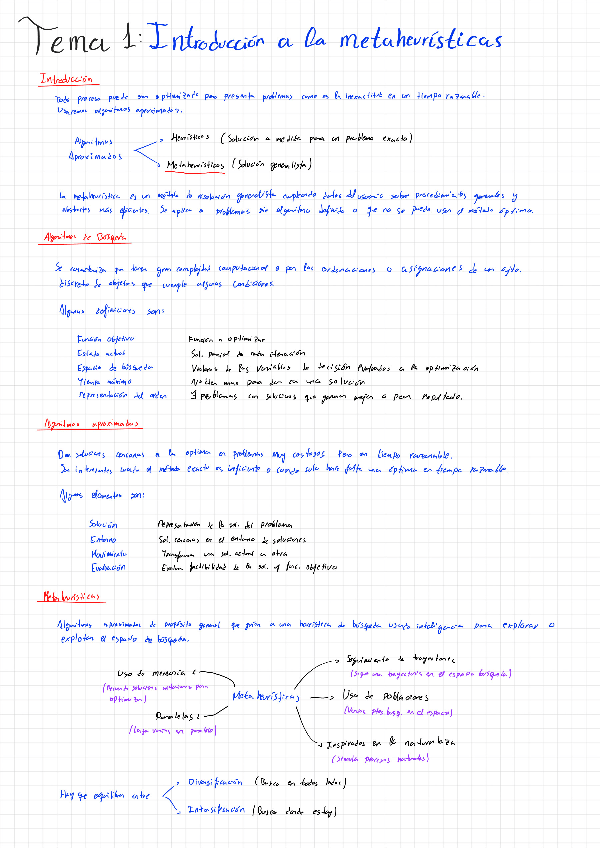 Tema 1: Introducción a la metaheurísticas
Introducción
Todo proceso puede ser optimizado pero presenta problemas como es la inexactitud en un tiempo razonable.
Usaremos algoritmos aproximados.
Algoritmos
Aproximados
Heurísticos (Solución a medida para un problema exacto)
Metaheurísticos (Solución generalista)
La metaheurística es un método de resolución generalista empleando datos del usuario sobre procedimientos generales y
abstractos más eficientes. Se aplica a problemas sin algoritmo definido o que no se puede usar el método óptimo.
Algoritmos de Búsqueda
Se caracteriza por tener gran complejidad computacional o por las ordenaciones o asignaciones de un cjto.
discreto de objetos que cumple algunas condiciones.
Algunas definiciones son:
Función objetivo Función a optimizar
Estado actual Sol. parcial de cada iteración
Espacio de búsqueda Valores de las variables de decisión
a la optimización
Tiempo máximo para dar con una solución
Representación del orden problemas con soluciones que generan mejor o peor resultado.
Algoritmos aproximados
Dan soluciones cercanas a la óptima en problemas muy costosos pero en tiempo razonable.
Son interesantes cuando el método exacto es ineficiente o cuando solo hace falta una óptima en tiempo razonable
Algunos elementos son:
Solución Representación de la sol. del problema
Entorno Sol. cercanas en el entorno de soluciones
Movimiento Transforma una sol. actual en otra
Evaluación Evalua factibilidad de la sol. y func. objetivo
Metaheurísticas
Algoritmos aproximados de propósito general que guían a una heurística de búsqueda usando inteligencia para explorar o
explotar el espacio de búsqueda.
Uso de memoria
optimizar)
Paralelas
(Lanza varias en paralelo)
Metaheurísticas
Seguimiento de trayectoria
(Sigue una trayectoria en el espacio búsqueda)
Uso de poblaciones
(Varios ptos. búsq. en el espacio)
Inspirados en la naturaleza
(Simula procesos naturales)
Hay que equilibrar entre
Diversificación (Busca en todos lados)
Intensificación (Busca donde estoy)